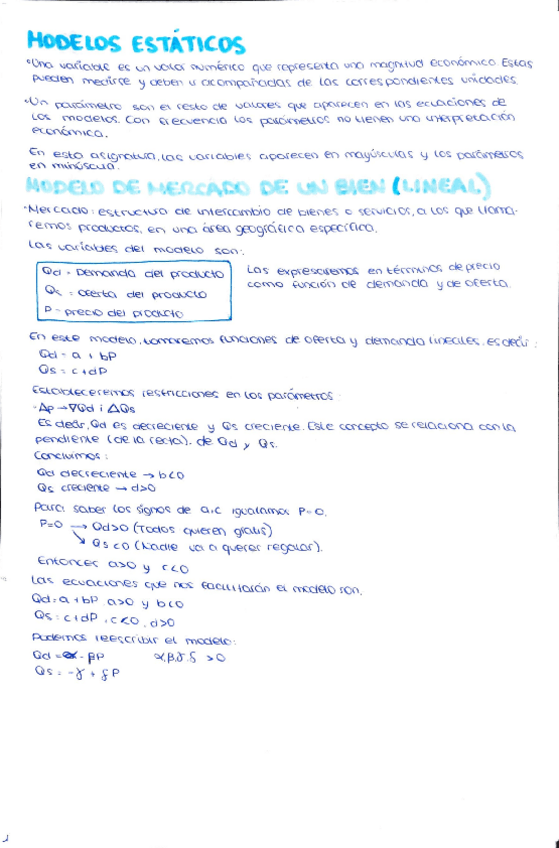 MODELOS ESTÁTICOS
·Una variable es un valor numérico que representa una magnitud económica. Estas
pueden medirse y deben ir acompañadas de las correspondientes unidades.
·Un parámetro son el resto de valores que aparecen en las ecuaciones de
los modelos. Con frecuencia los parámetros no tienen una interpretación
económica.
En esta asignatura, las variables aparecen en mayúsculas y los parámetros
en minúscula.
MODELO DE MERCADO DE UN BIEN (LINEAL)
·Mercado: estructura de intercambio de bienes o servicios, a los que llama-
remos productos, en una área geográfica específica.
Las variables del modelo son:
Qd = Demanda del producto
Qs = oferta del producto
P = precio del producto
Las expresaremos en términos de precio
como función de demanda y de oferta.
En este modelo, tomaremos funciones de oferta y demanda lineales, es decir:
Qd = a + bP
Qs = c + dP
Estableceremos restricciones en los parámetros:
·Δp → ∇Qd i ΔQs
Es decir, Qd es decreciente y Qs creciente. Este concepto se relaciona con la
pendiente (de la recta), de Qd y Qs.
Concluimos:
Qd decreciente → b<0
Qs creciente → d>0
Para saber los signos de a,c igualamos P=0.
P=0 → Qd>0 (Todos quieren gratis)
↘ Qs<0 (Nadie va a querer regalar).
Entonces a>0 y c<0
Las ecuaciones que nos facilitarán el modelo son,
Qd = a + bP a>0 y b<0
Qs = c + dP, c<0, d>0
Podemos reescribir el modelo:
Qd = α - βP α,β,γ,δ >0
Qs = -γ + δP